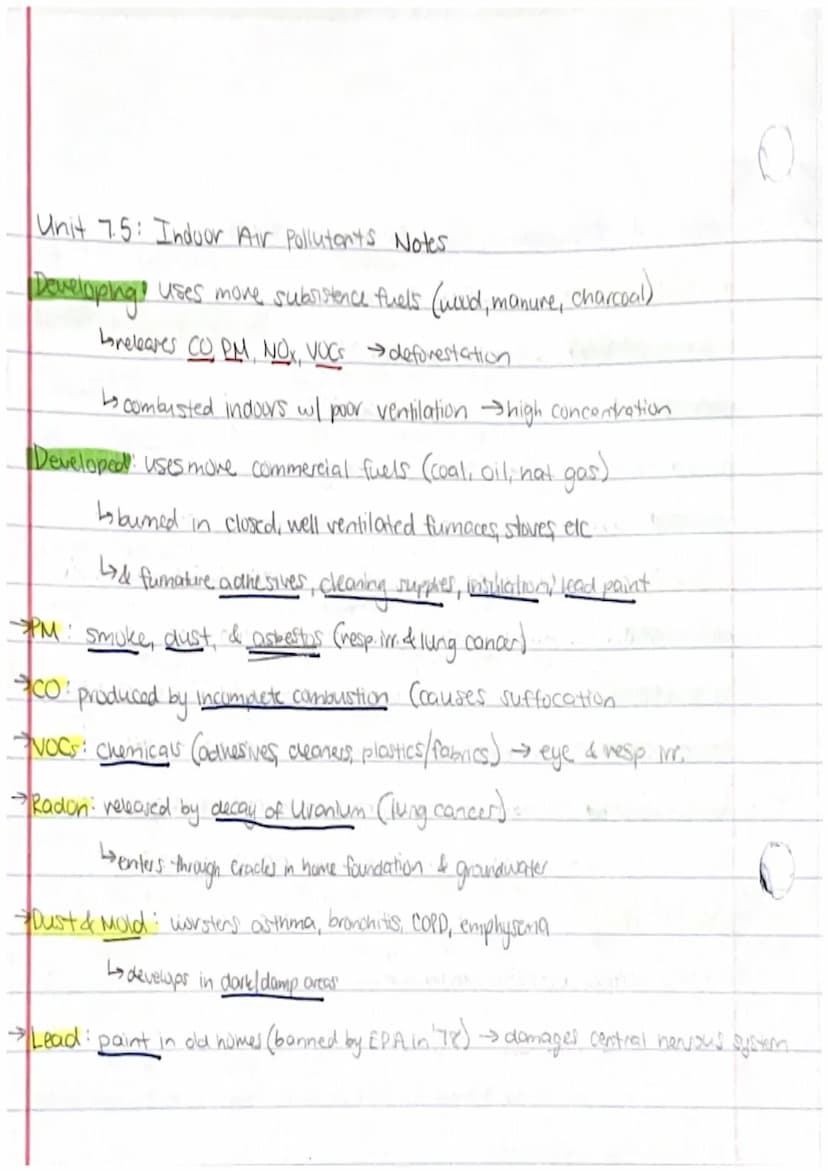 Unit 7.5: Indoor Air Pollutants Notes
Developing: uses more subsistence fuels (wood, manure, charcoal)
↳releases CO, PM, NOx, VOCs →deforestation
↳combusted indoors w/ poor ventilation →high concentration
Developed: uses more commercial fuels (coal, oil, nat gas)
↳burned in closed, well ventilated furnaces, stoves, etc
↳& furnature adhesives, cleaning supplies, insulation, lead paint
→PM: smoke, dust, & asbestos (resp. irr. & lung cancer)
→CO: produced by incomplete combustion (causes suffocation
→VOCs: chemicals (adhesives, cleaners, plastics/fabrics) → eye & resp irr.
→Radon: released by decay of Uranium (lung cancer)
↳enters through cracks in home foundation & groundwater
→Dust & Mold: worstens asthma, bronchitis, COPD, emphysema
↳develops in dark/damp areas
→Lead: paint in old homes (banned by EPA in '78) → damages central nervous system